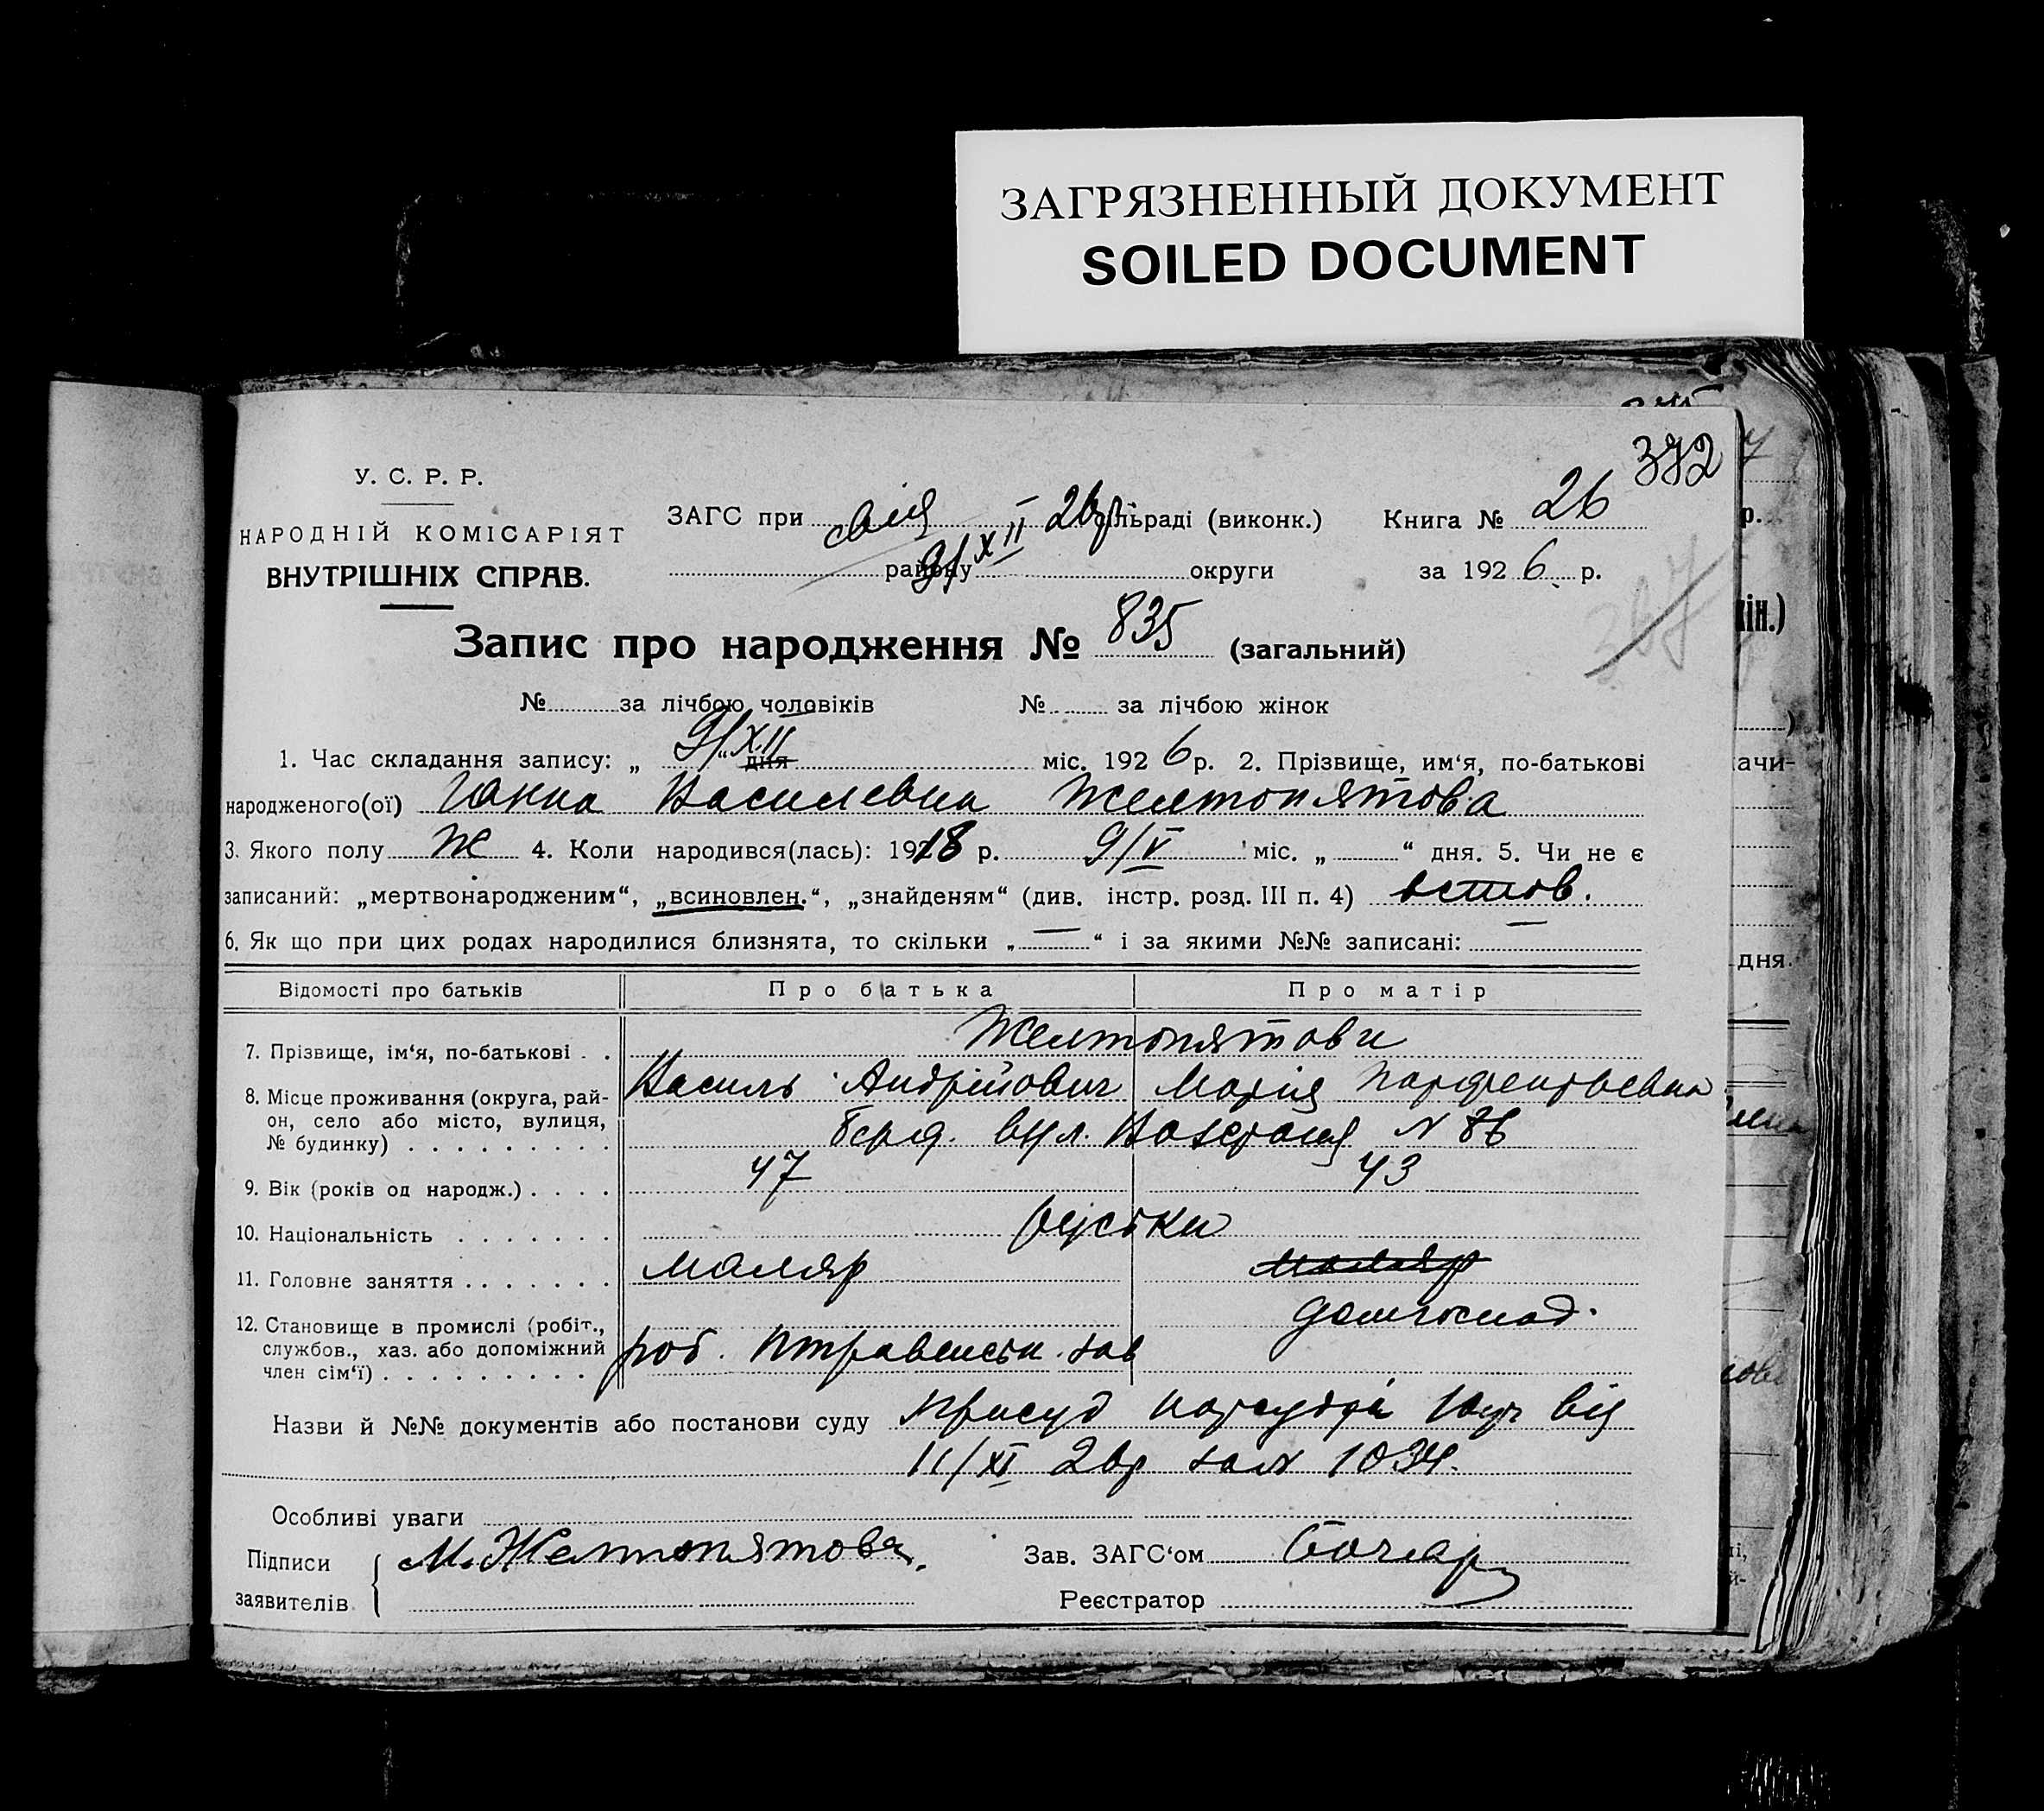 ЗАГРЯЗНЕННЫЙ ДОКУМЕНТ
SOILED DOCUMENT
372
У. С. Р. Р.
НАРОДНІЙ КОМІСАРІЯТ
ВНУТРІШНІХ СПРАВ.
ЗАГС при сільраді (виконк.) Книга № 26
9/XII району округи за 1926 р.
Запис про народження № 835 (загальний)
№ за лічбою чоловіків № за лічбою жінок
1. Час складання запису: „ 9/XII “ дня міс. 1926 р. 2. Прізвище, им‘я, по-батькові
народженого(ої) Ганна Василевна Желтопятова
3. Якого полу Ж 4. Коли народився(лась): 1918 р. 9/V міс. „ “ дня. 5. Чи не є
записаний: „мертвонародженим“, „всиновлен.“, „знайденям“ (див. інстр. розд. III п. 4)
6. Як що при цих родах народилися близнята, то скільки „ — “ і за якими №№ записані: —
Відомості про батьків Про батька Про матір
7. Прізвище, ім‘я, по-батькові . . Желтопятови
Василь Андрійович Марія Парфентьевна
8. Місце проживання (округа, рай-
он, село або місто, вулиця,
№ будинку) . . . . . . . . . вул. N 86
9. Вік (років од народж.) . . . . 47 43
10. Національність . . . . . . .
11. Головне заняття . . . . . . . маляр маляр
домгоспод.
12. Становище в промислі (робіт.,
службов., хаз. або допоміжний
член сім‘ї) . . . . . . . . . . роб. зав
Назви й №№ документів або постанови суду присуд нарсуда від
11/XI 26р за N 1034.
Особливі уваги
Підписи М. Желтопятова. Зав. ЗАГС‘ом
заявителів Реєстратор